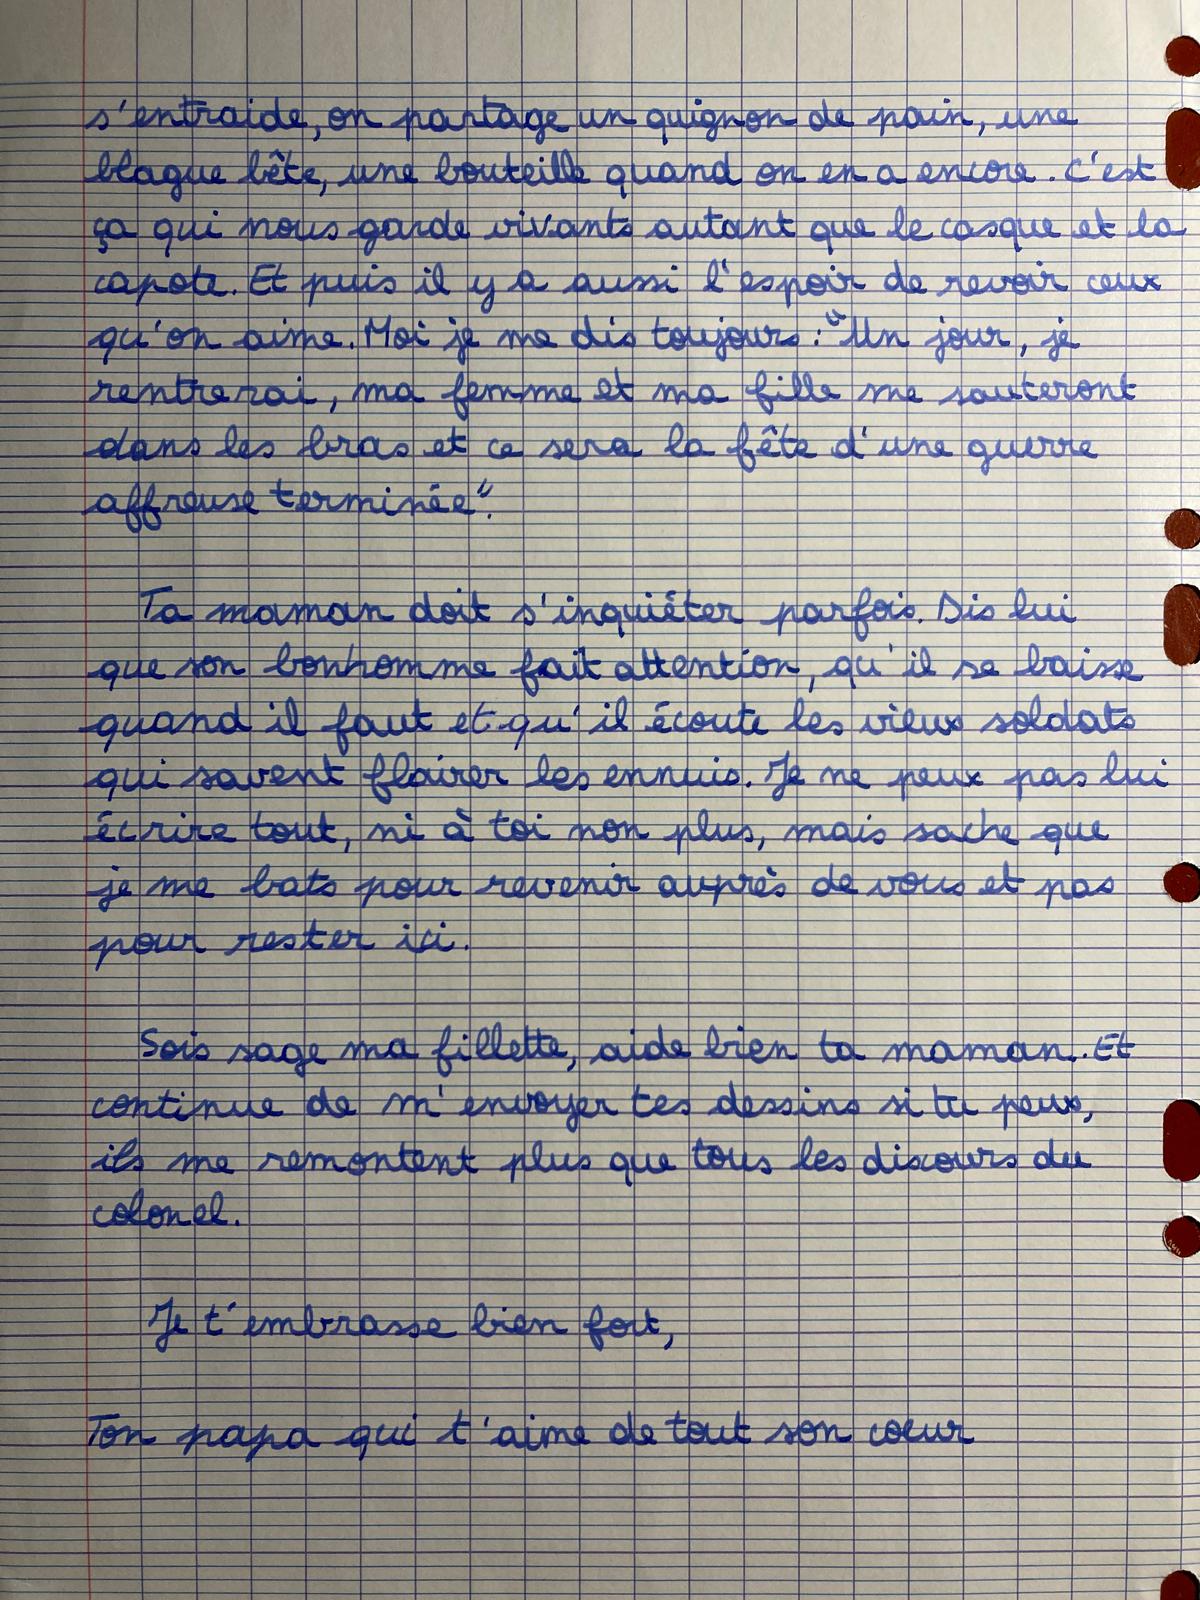 s'entraide, on partage un quignon de pain, une
blague bête, une bouteille quand on en a encore. C'est
ça qui nous garde vivants autant que le casque et la
capote. Et puis il y a aussi l'espoir de revoir ceux
qu'on aime. Moi je me dis toujours : "Un jour, je
rentrerai, ma femme et ma fille me sauteront
dans les bras et ce sera la fête d'une guerre
affreuse terminée".
Ta maman doit s'inquiéter parfois. Dis lui
que son bonhomme fait attention, qu'il se baisse
quand il faut et qu'il écoute les vieux soldats
qui savent flairer les ennuis. Je ne peux pas lui
écrire tout, ni à toi non plus, mais sache que
je me bats pour revenir auprès de vous et pas
pour rester ici.
Sois sage ma fillette, aide bien ta maman. Et
continue de m'envoyer tes dessins si tu peux,
ils me remontent plus que tous les discours du
colonel.
Je t'embrasse bien fort,
Ton papa qui t'aime de tout son coeur